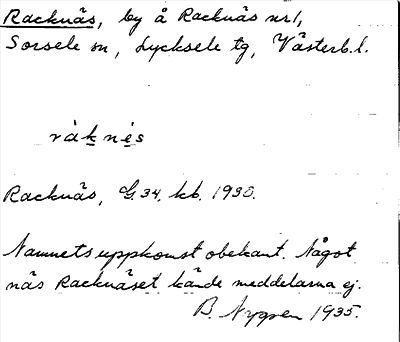 Racknäs, by å Racknäs nr 1,
Sorsele sn, Lycksele tg, Västerb. l.
ràknès
Racknäs, G. 34, kb. 1930.
Namnets uppkomst obekant. Något
näs Racknäset kände meddelarna ej.
B. Nygren 1935.